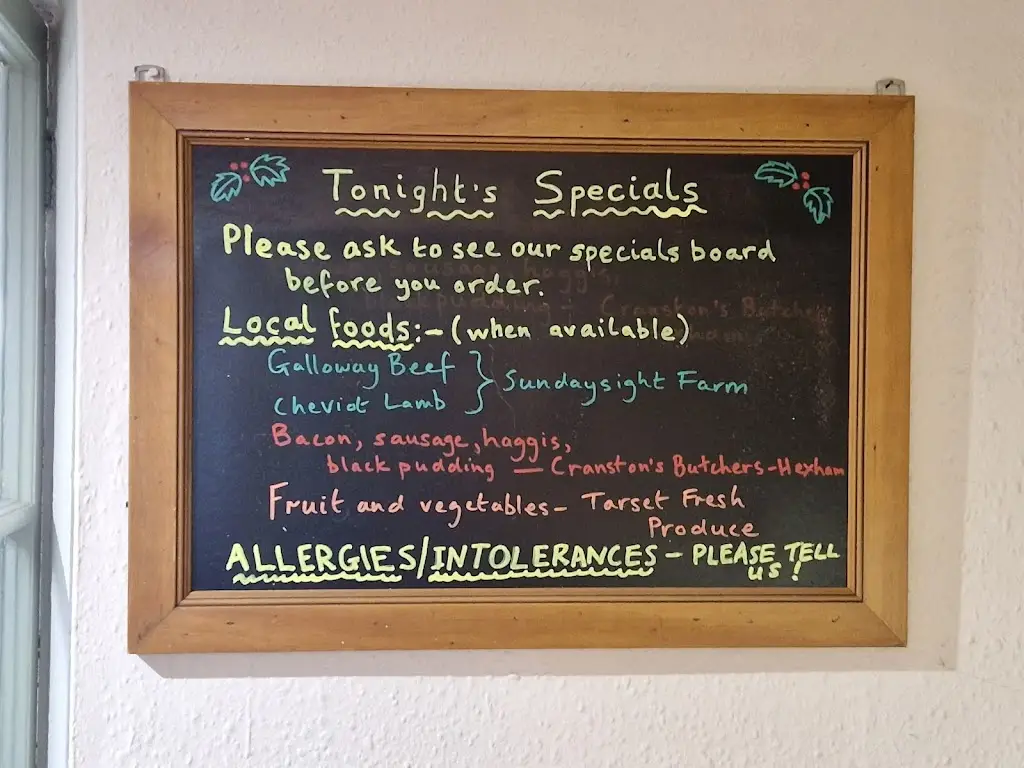 Tonight's Specials
Please ask to see our specials board
before you order.
Local foods:- (when available)
Galloway Beef } Sundaysight Farm
Cheviot Lamb
Bacon, sausage, haggis,
black pudding — Cranston's Butchers-Hexham
Fruit and vegetables - Tarset Fresh
Produce
ALLERGIES/INTOLERANCES - PLEASE TELL
US!